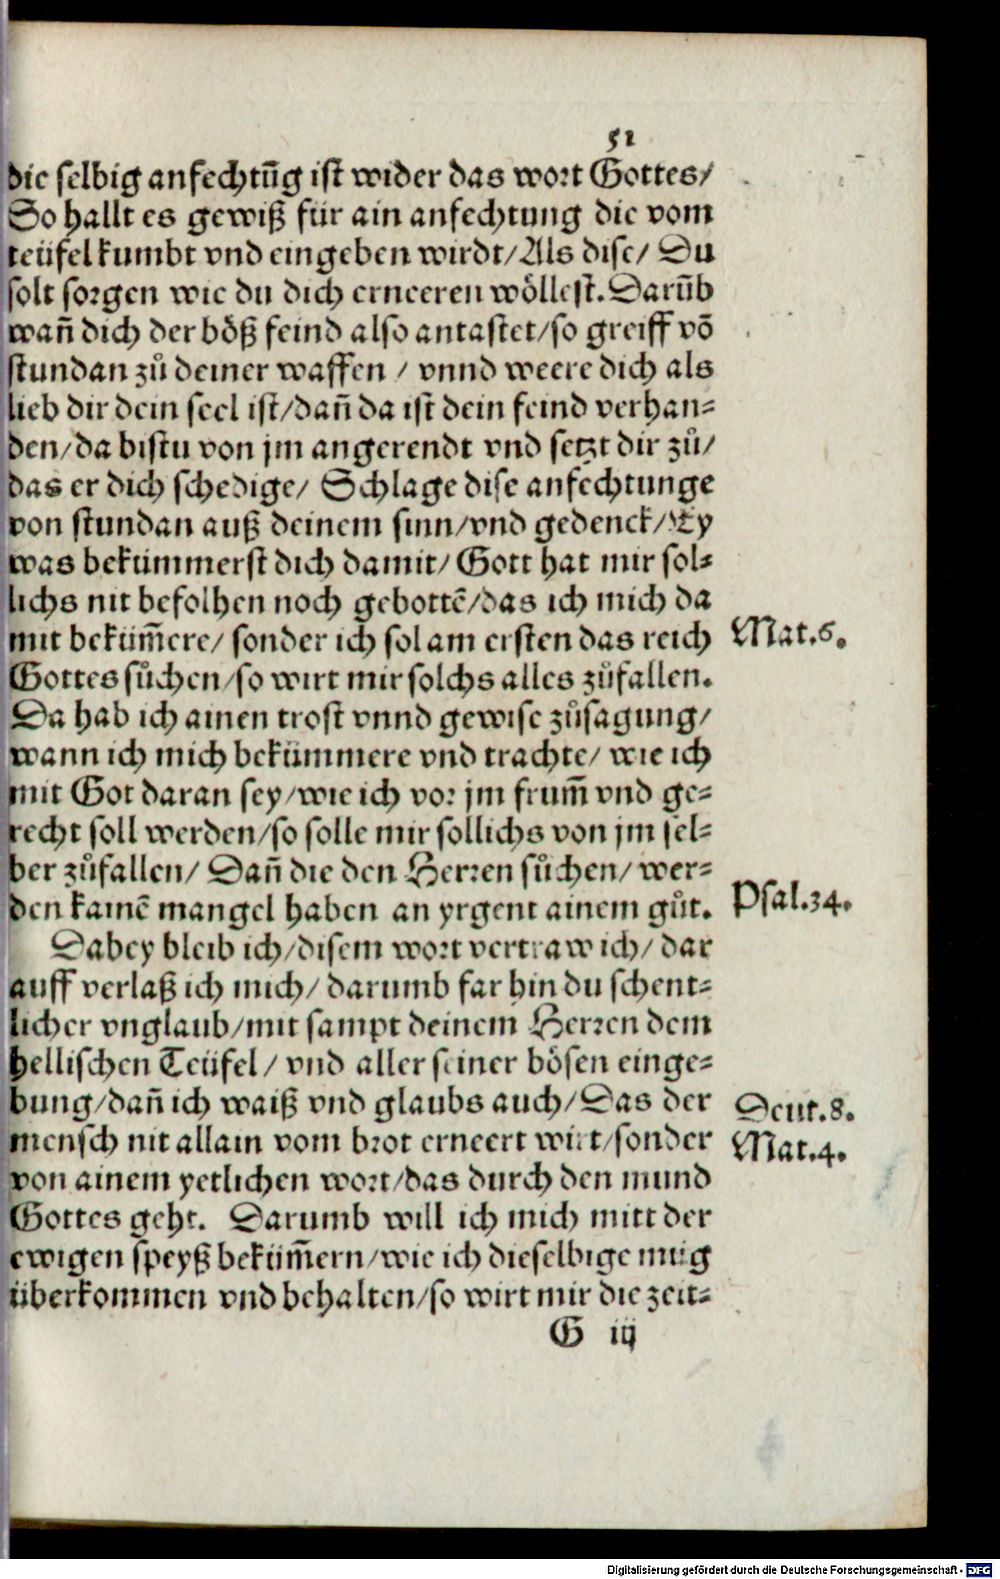 51
die selbig anfechtūg ist wider das wort Gottes/
So hallt es gewiß für ain anfechtung die vom
teüfel kumbt vnd eingeben wirdt/Als dise/ Du
solt sorgen wie du dich erneeren wöllest. Darūb
wañ dich der böß feind also antastet/so greiff vō
stundan zů deiner waffen / vnnd weere dich als
lieb dir dein seel ist/dañ da ist dein feind verhan⸗
den/da bistu von jm angerendt vnd setzt dir zů/
das er dich schedige/ Schlage dise anfechtunge
von stundan auß deinem sinn/vnd gedenck/Ey
was bekümmerst dich damit/ Gott hat mir sol⸗
lichs nit befolhen noch gebottē/das ich mich da
mit beküm̄ere/ sonder ich sol am ersten das reich
Mat.6.
Gottes sůchen/so wirt mir solchs alles zůfallen.
Da hab ich ainen trost vnnd gewise zůsagung/
wann ich mich bekümmere vnd trachte/ wie ich
mit Got daran sey/wie ich vor jm frum̄ vnd ge⸗
recht soll werden/so solle mir sollichs von jm sel⸗
ber zůfallen/ Dañ die den Herren sůchen/ wer⸗
den kainē mangel haben an yrgent ainem gůt.
Psal.34.
Dabey bleib ich/disem wort vertraw ich/ dar
auff verlaß ich mich/ darumb far hin du schent⸗
licher vnglaub/mit sampt deinem Herren dem
hellischen Teüfel/ vnd aller seiner bösen einge⸗
bung/dañ ich waiß vnd glaubs auch/Das der
Deut.8.
mensch nit allain vom brot erneert wirt/sonder
Mat.4.
von ainem yetlichen wort/das durch den mund
Gottes geht. Darumb will ich mich mitt der
ewigen speyß beküm̄ern/wie ich dieselbige müg
überkommen vnd behalten/so wirt mir die zeit⸗
G iij
Digitalisierung gefördert durch die Deutsche Forschungsgemeinschaft - DFG